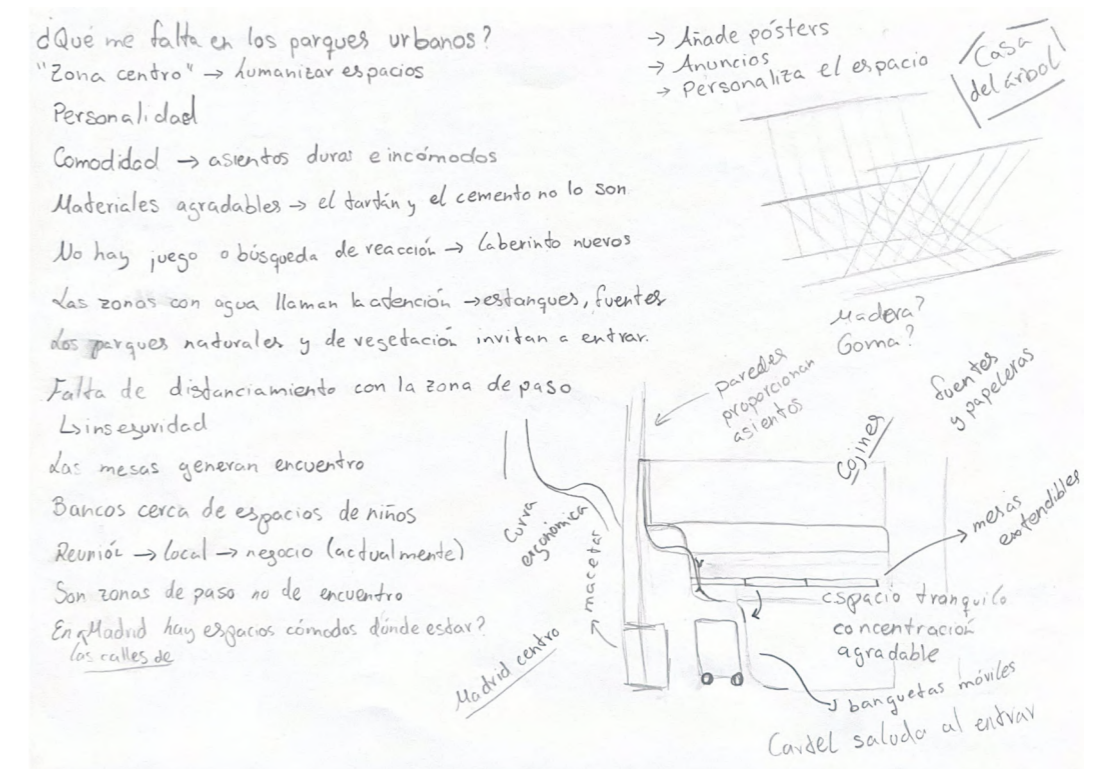 ¿Qué me falta en los parques urbanos?
"Zona centro" → humanizar espacios
Personalidad
Comodidad → asientos duros e incómodos
Materiales agradables → el tartán y el cemento no lo son
No hay juego o búsqueda de reacción → laberinto nuevos
Las zonas con agua llaman la atención → estanques, fuentes
Los parques naturales y de vegetación invitan a entrar.
Falta de distanciamiento con la zona de paso
↳ inseguridad
Las mesas generan encuentro
Bancos cerca de espacios de niños
Reunión → local → negocio (actualmente)
Son zonas de paso no de encuentro
En Madrid hay espacios cómodos dónde estar?
las calles de
→ Añade pósters
→ Anuncios
→ Personaliza el espacio
Casa
del árbol
Madera?
Goma?
paredes
proporcionan
asientos
Cojines
fuentes
y papeleras
Curva
ergonómica
macetas
mesas
extendibles
espacio tranquilo
concentración
agradable
Madrid centro
banquetas móviles
Cartel saluda al entrar